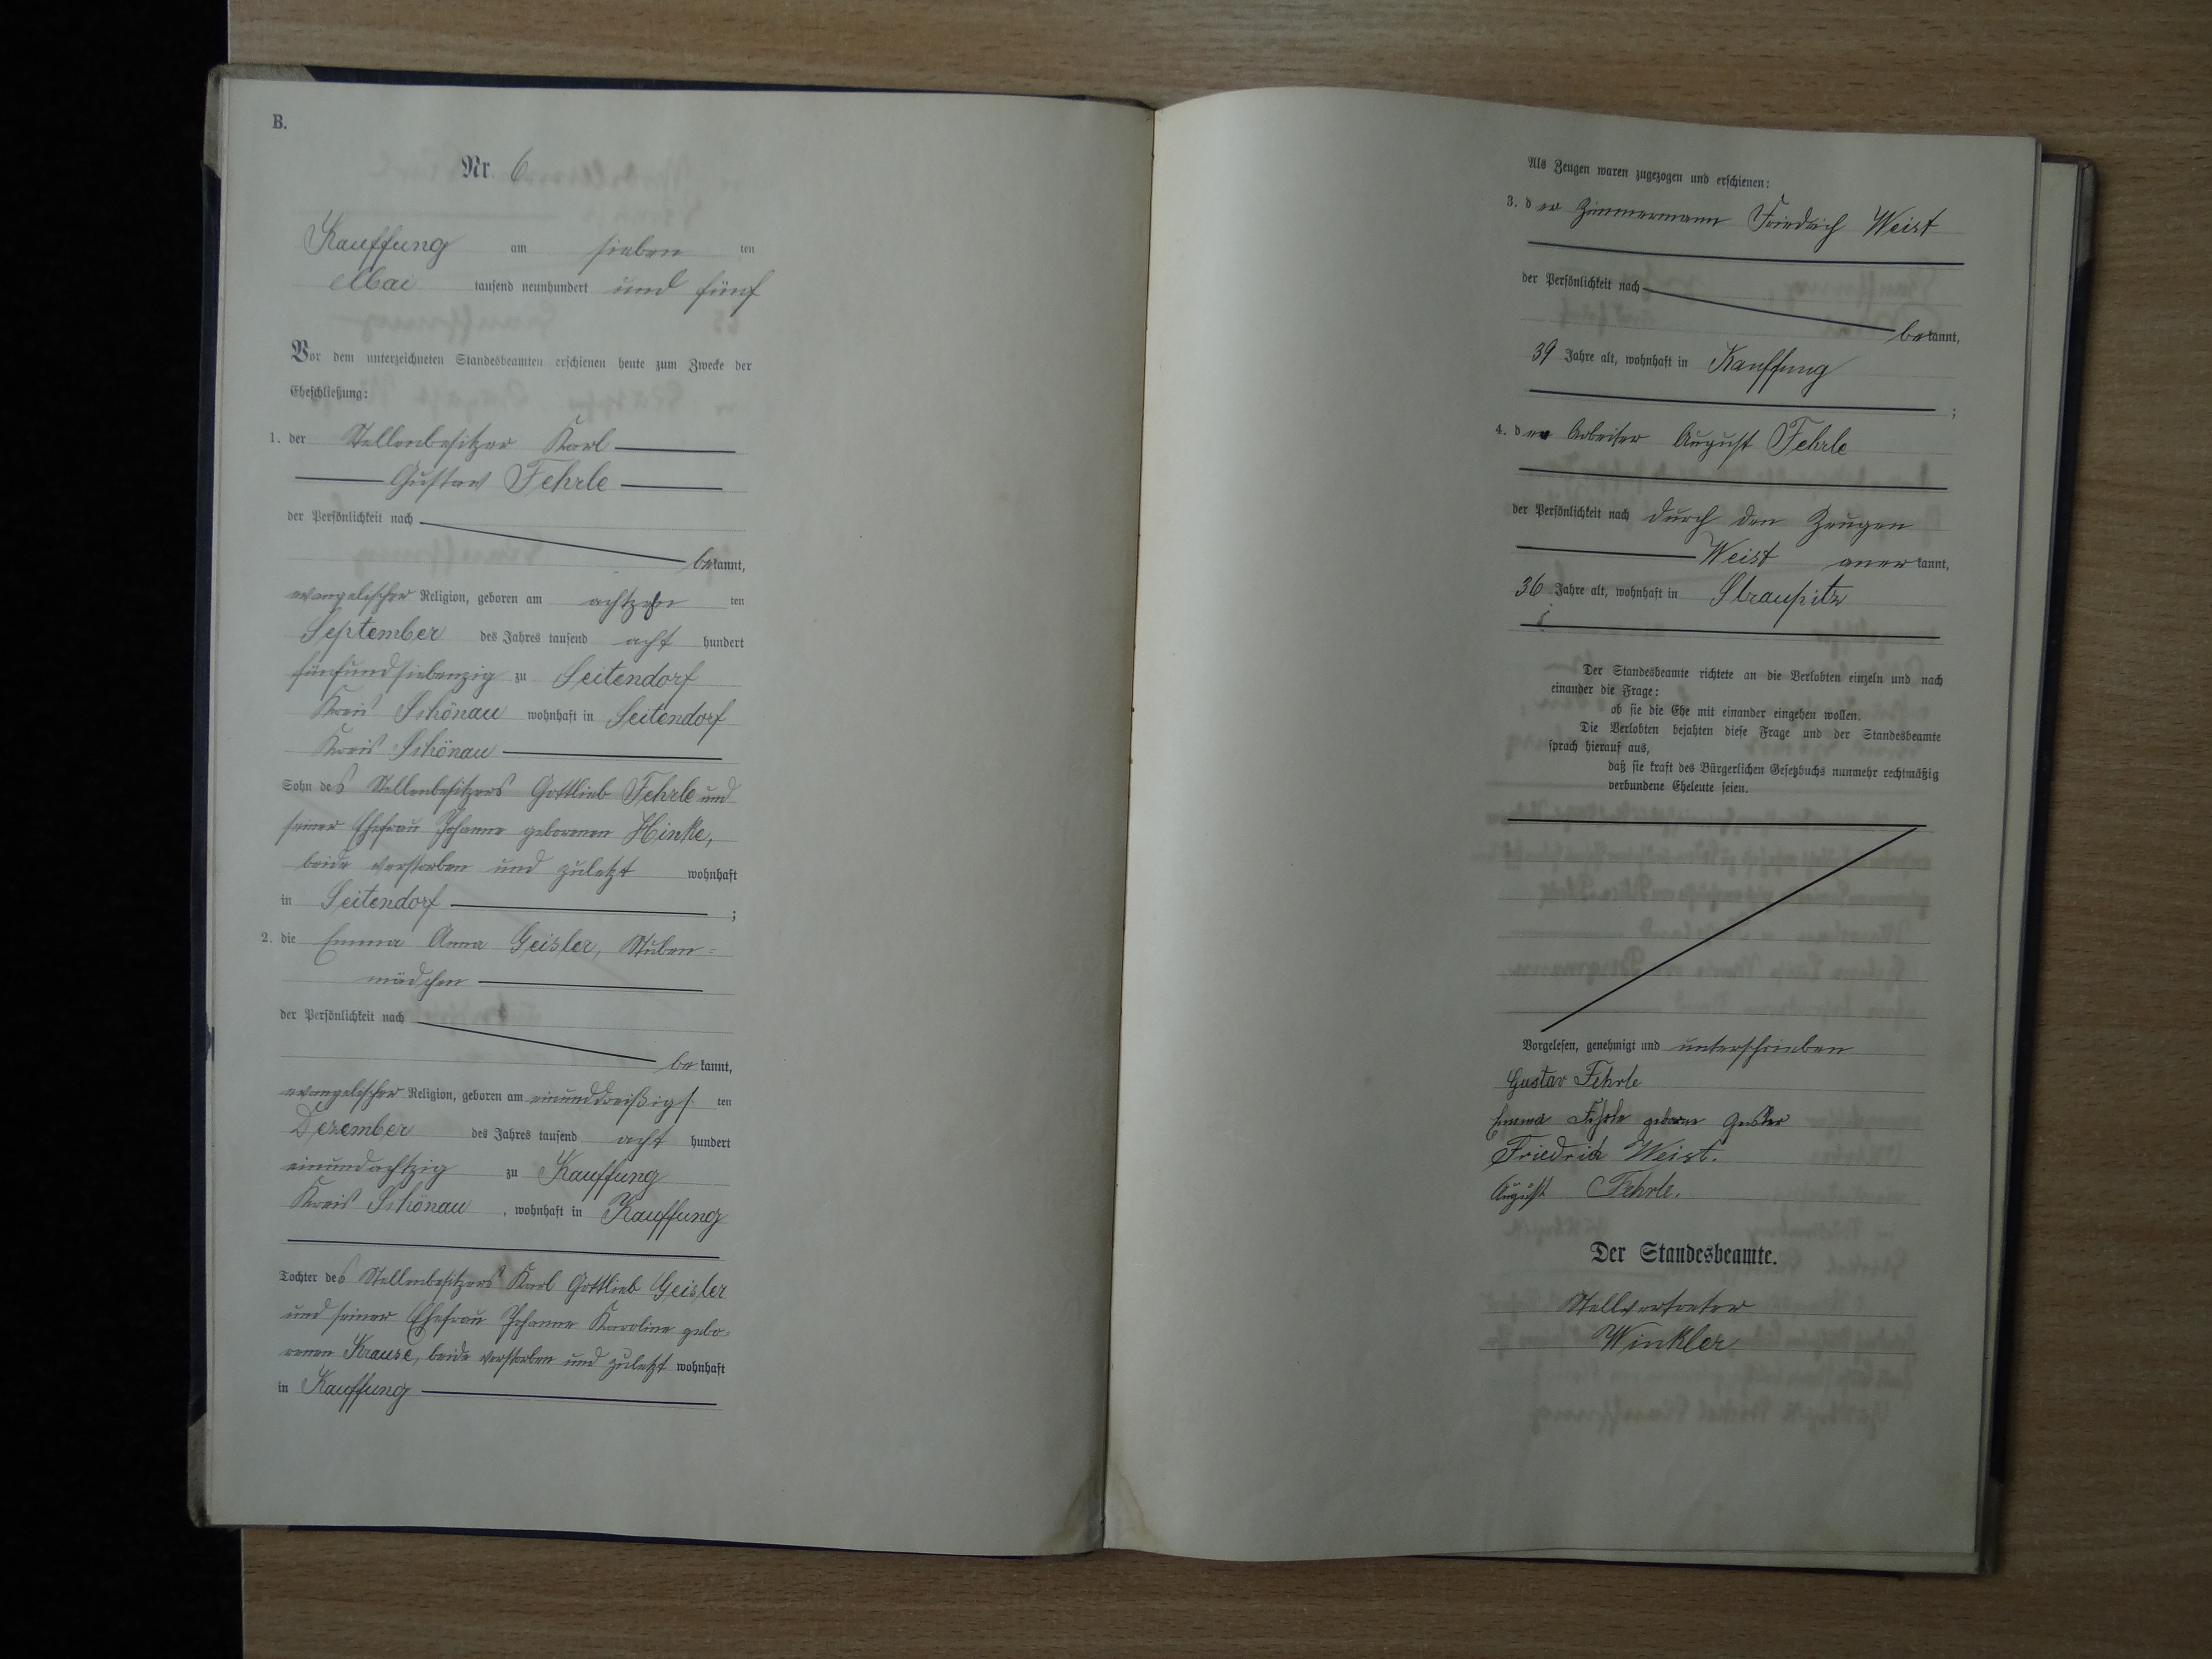 B.
Nr. 6
Kauffung am sieben ten
Mai tausend neunhundert und fünf
Vor dem unterzeichneten Standesbeamten erschienen heute zum Zwecke der
Eheschließung:
1. der Stellenbesitzer Karl
Gustav Fehrle
der Persönlichkeit nach
bekannt,
evangelischer Religion, geboren am achtzehn ten
September des Jahres tausend acht hundert
fünfundsiebenzig zu Seitendorf
Kreis Schönau wohnhaft in Seitendorf
Kreis Schönau
Sohn des Stellenbesitzers Gottlieb Fehrle und
seiner Ehefrau Johanne geborenen Hinke,
beide verstorben und zuletzt wohnhaft
in Seitendorf ;
2. die Emma Anna Geisler, Stuben=
mädchen
der Persönlichkeit nach
bekannt,
evangelischer Religion, geboren am einunddreißigs ten
Dezember des Jahres tausend acht hundert
einundachtzig zu Kauffung
Kreis Schönau, wohnhaft in Kauffung
Tochter des Stellenbesitzers Karl Gottlieb Geisler
und seiner Ehefrau Johanne Karoline gebo-
renen Krause, beide verstorben und zuletzt wohnhaft
in Kauffung
Als Zeugen waren zugezogen und erschienen:
3. der Zimmermann Friedrich Weist
der Persönlichkeit nach
bekannt,
39 Jahre alt, wohnhaft in Kauffung
;
4. der Arbeiter August Fehrle
der Persönlichkeit nach durch den Zeugen
Weist anerkannt,
36 Jahre alt, wohnhaft in Straupitz
Der Standesbeamte richtete an die Verlobten einzeln und nach
einander die Frage:
ob sie die Ehe mit einander eingehen wollen.
Die Verlobten bejahten diese Frage und der Standesbeamte
sprach hierauf aus,
daß sie kraft des Bürgerlichen Gesetzbuchs nunmehr rechtmäßig
verbundene Eheleute seien.
Vorgelesen, genehmigt und unterschrieben
Gustav Fehrle
Emma Fehrle geborne Geisler
Friedrich Weist.
August Fehrle.
Der Standesbeamte.
Stellvertreter
Winkler